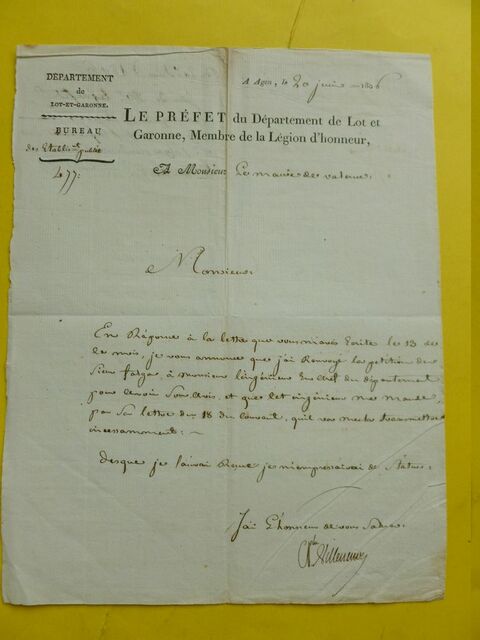 DÉPARTEMENT
de
LOT-ET-GARONNE.
BUREAU
des Etablis.t publics
477:
A Agen, le 20 juin 1806
LE PRÉFET du Département de Lot et
Garonne, Membre de la Légion d'honneur,
A Monsieur Le maire de valence
Monsieur
En Réponse à la lettre que vous m'avez Ecrite le 13 de
ce mois, je vous annonce que j'ai Renvoyé la petition du
Sieur farga, à monsieur l'ingénieur En chef du département
pour avoir Son avis, et que cet ingénieur me marque
par Sa lettre du 18 du Courant, qu'il va me la transmettre
incessamment: ~
Desque je l'aurai Reçue je m'empresserai de Statuer.
J'ai L'honneur de vous Saluer.
Villeneuve